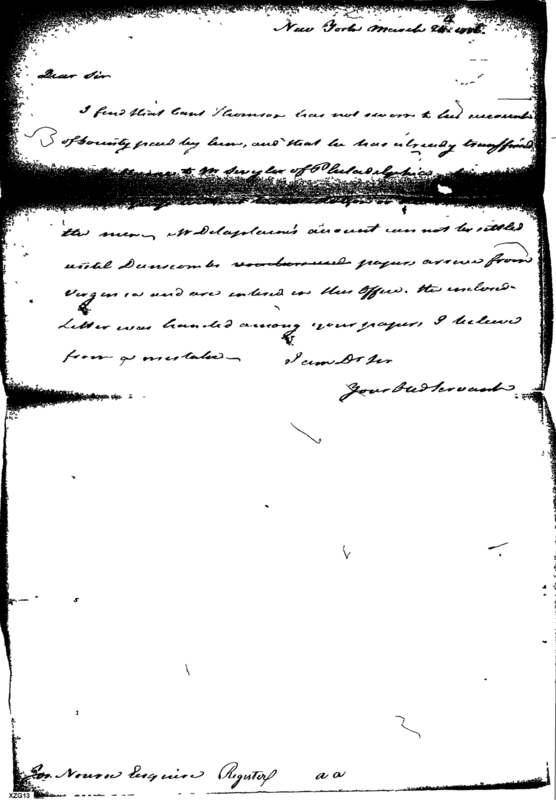 New York March 24th 1786.
Dear Sir
I find that Cant Thomson has not sworn to his accounts
of bounty paid by him, and that he has already transferred
to Mr Swyler of Philadelphia
the men. Mr Delaplaine's account can not be settled
until Dunscombs papers arrive from
Virginia and are entered in this Office. The enclosed
Letter was handed among your papers I believe
from a mistake I am Dr Sir
Your Obed Servant
Jos. Nourse Esquire Register
XZG13